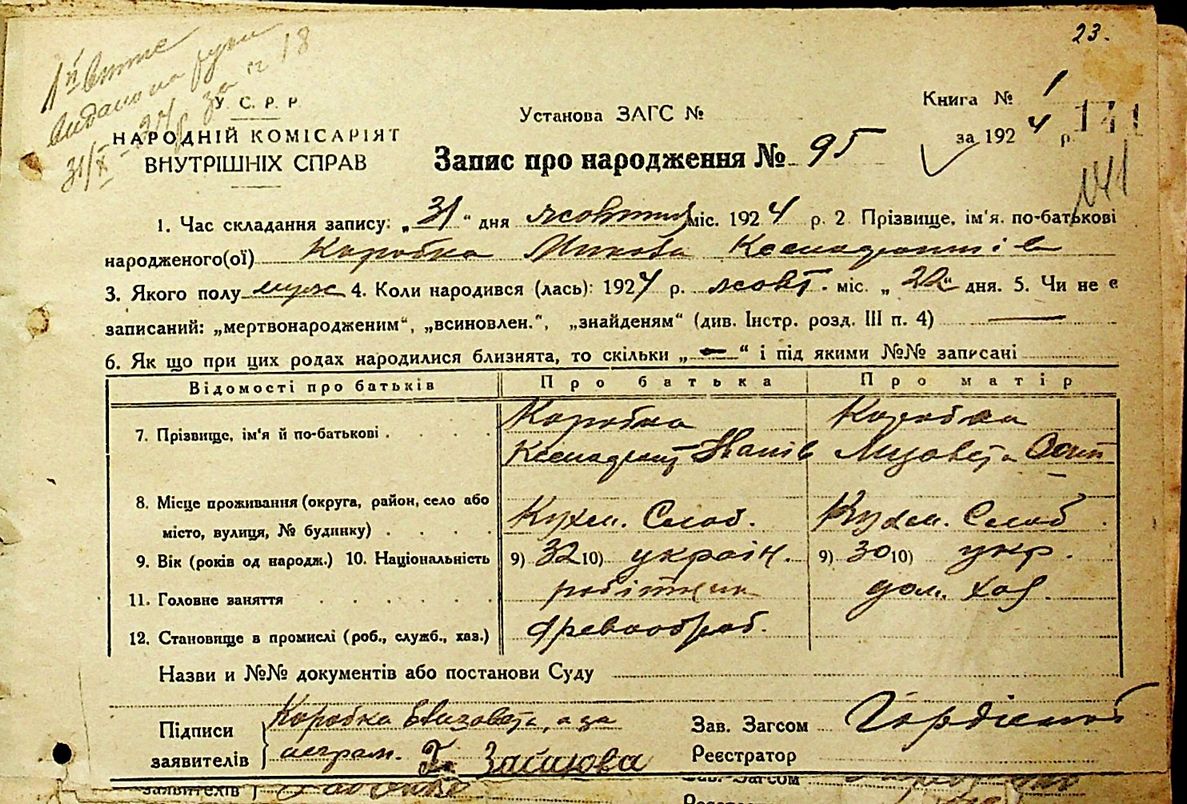 23.
1й Витяг
видано на руки
31/X – 34 р. за № 18
У. С. Р. Р
НАРОДНІЙ КОМІСАРІЯТ
ВНУТРІШНІХ СПРАВ
Установа ЗАГС №
Книга № 1
за 1924 р.
141
141
Запис про народження № 95
1. Час складання запису: „31“ дня жовтня міс. 1924 р. 2. Прізвище, ім'я. по-батькові
народженого(ої) Коробка Микола
3. Якого полу муж 4. Коли народився (лась): 1924 р. жовт. міс. „22“ дня. 5. Чи не є
записаний: „мертвонародженим“, „всиновлен.“, „знайденям“ (див. Інстр. розд. III п. 4) —
6. Як що при цих родах народилися близнята, то скільки „—“ і під якими №№ записані
Відомості про батьків Про батька Про матір
7. Прізвище, ім'я й по-батькові . Коробка Коробка
Іванів Лизавета Осип
8. Місце проживання (округа, район, село або
місто, вулиця, № будинку) . Кухм. Слоб. Кухм. Слоб.
9. Вік (років од народж.) 10. Національність 9) 32 10) україн. 9) 30 10) укр.
11. Головне заняття робітник дом. хаз.
12. Становище в промислі (роб., служб., хаз.) древообраб.
Назви и №№ документів або постанови Суду
Підписи Коробка Елизавета, а за
заявителів неграм.
Зав. Загсом
Реєстратор
заявителів
Зав. Загсом